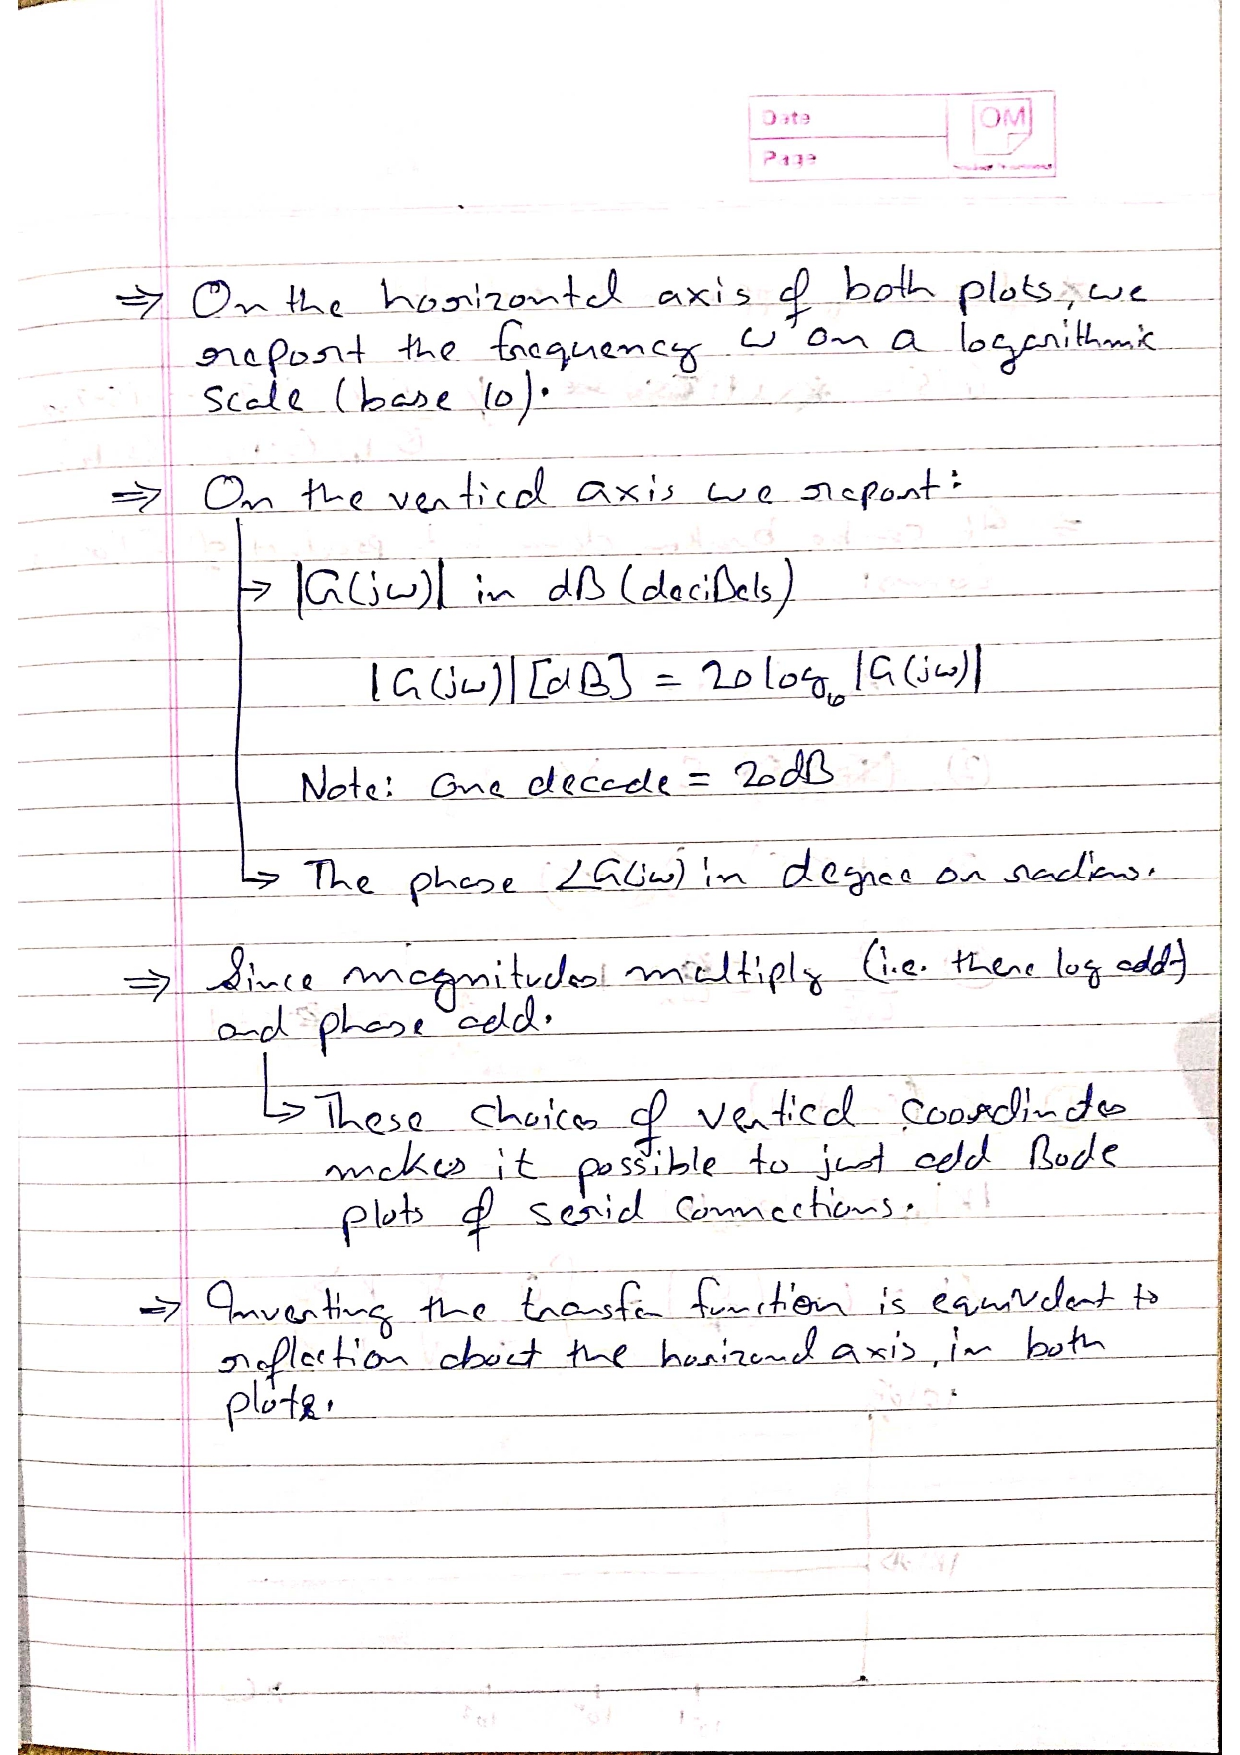 Date
OM
Page
⇒ On the horizontal axis of both plots, we
report the frequency ω on a logarithmic
scale (base 10).
⇒ On the vertical axis we report:
→ |G(jω)| in dB (deciBels)
|G(jω)| [dB] = 20 log₁₀ |G(jω)|
Note: One decade = 20dB
↳ The phase ∠G(jω) in degree or radians.
⇒ Since magnitudes multiply (i.e. there log add)
and phase add.
↳ These choices of vertical coordinates
makes it possible to just add Bode
plots of serial connections.
⇒ Inverting the transfer function is equivalent to
reflection about the horizontal axis, in both
plots.